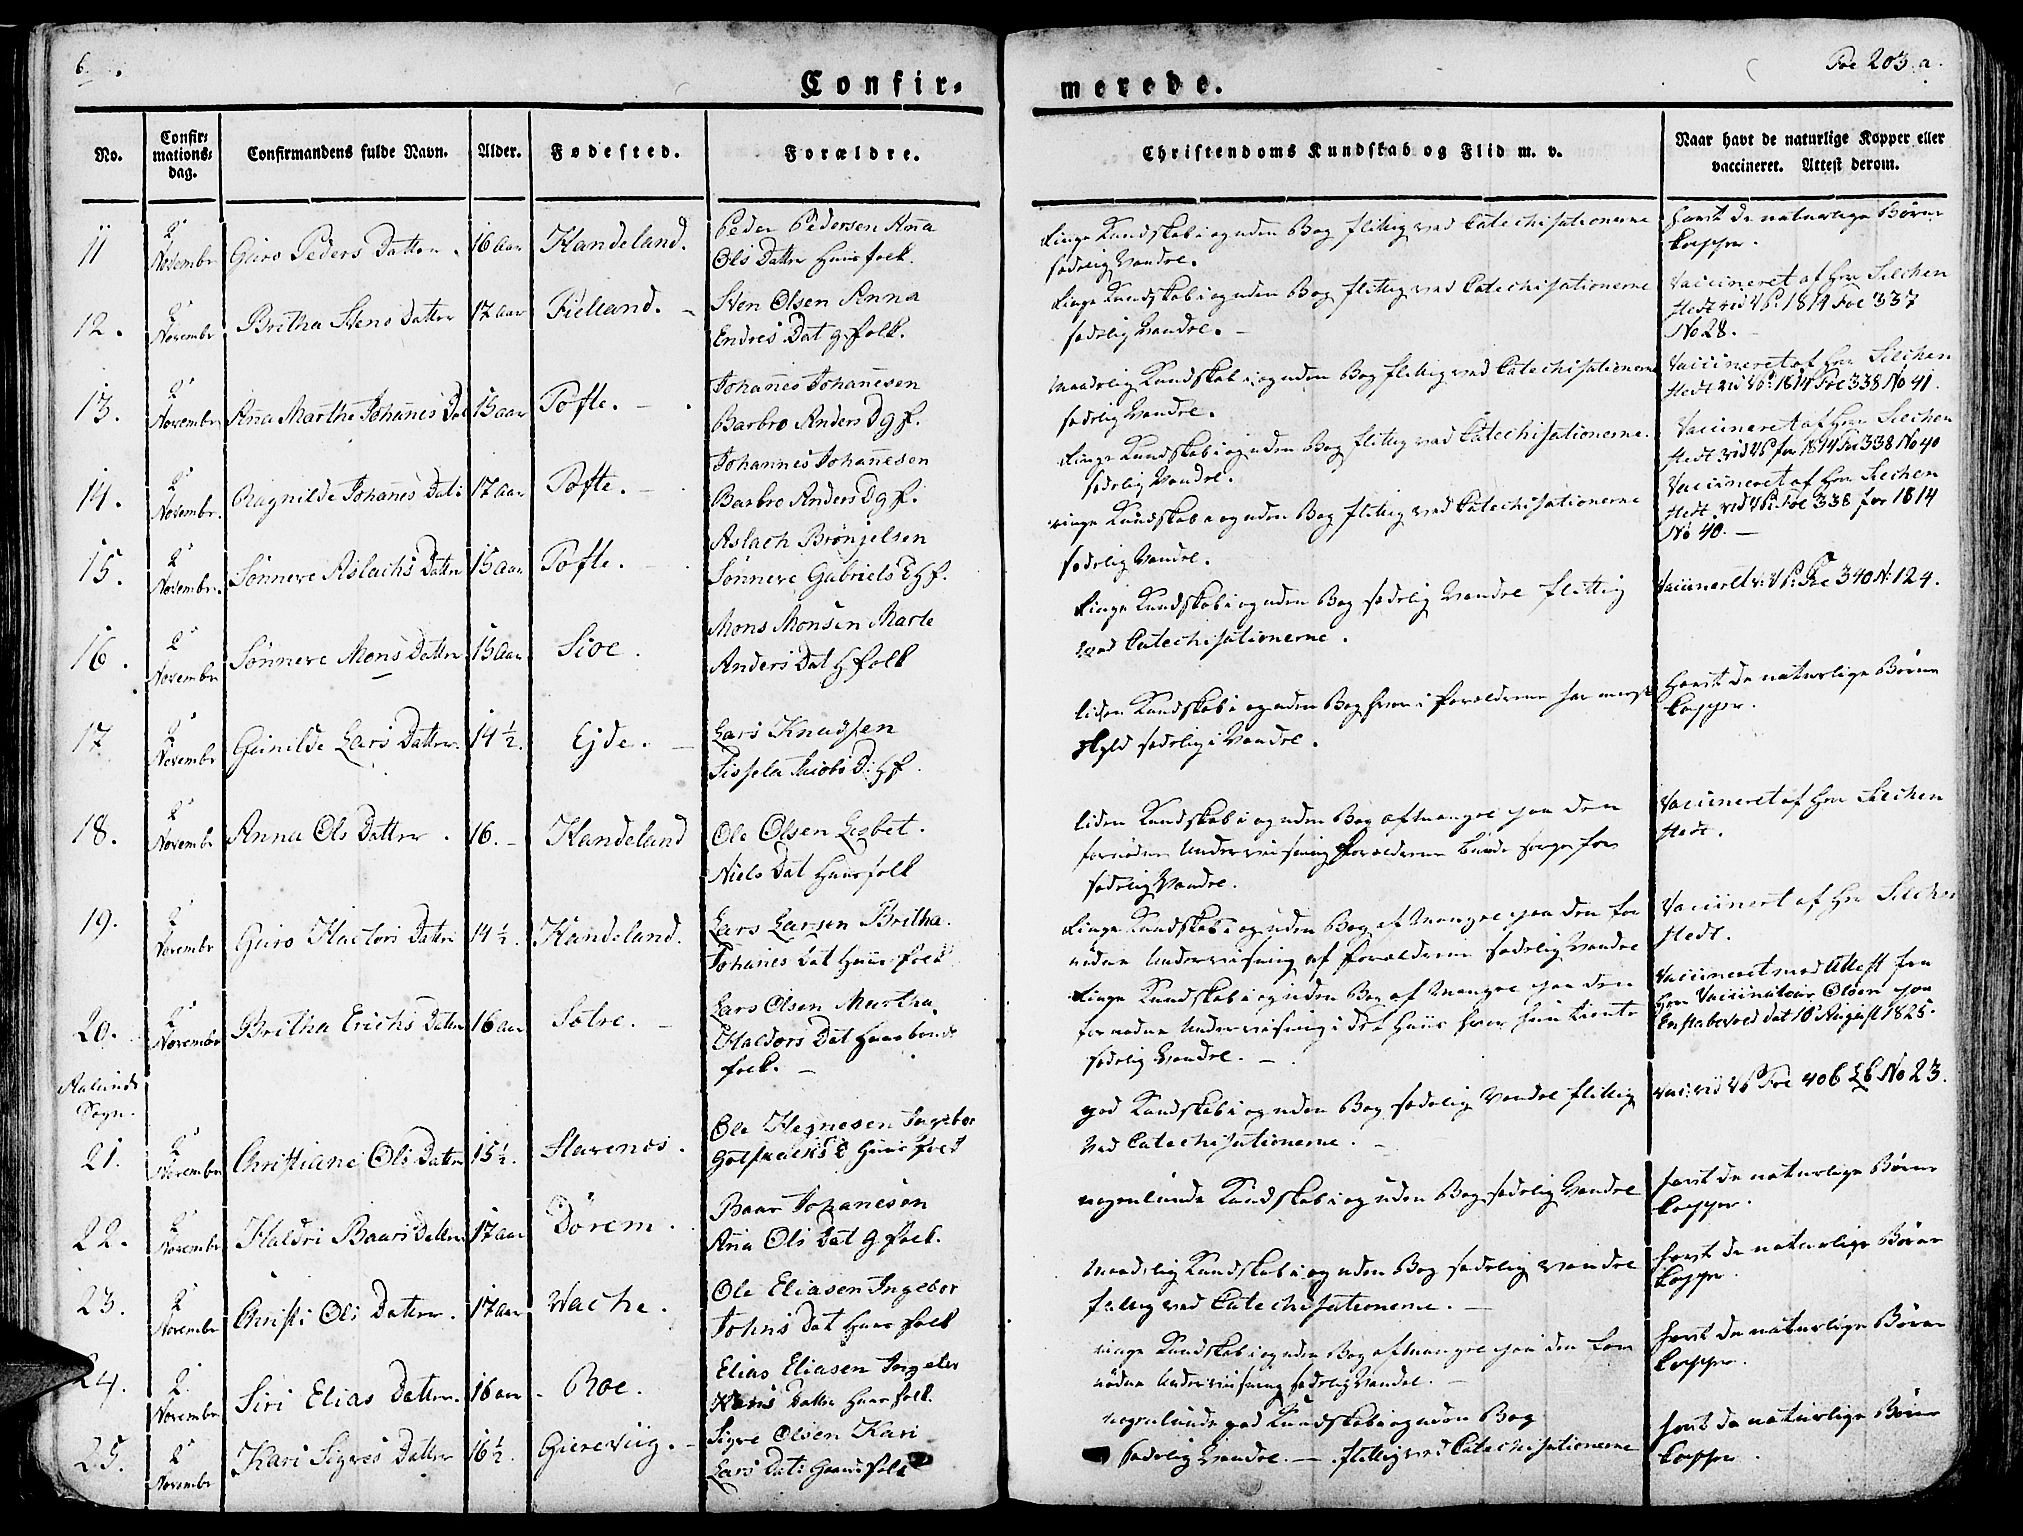 6
Confir-
merede.
Foe 203.a.
No.
Confir-
mations-
dag.
Confirmandens fulde Navn.
Alder.
Fødested.
Forældre.
Christendoms Kundskab og Flid m. v.
Naar havt de naturlige Kopper eller
vaccineret. Attest derom.
11 2' November Guro Peders Datter. 16 aar Handeland. Peder Pedersen Ana
Ols Datter Huusfolk.
Ringe Kundskab i og uden Bog flittig ved Catechisationerne
sædelig Vandel.
havt de naturlige Børne
kopper.
12. 2' November Britha Stens Datter 17 aar Fielland. Sten Olsen Anna
Endres Dat g. folk.
Ringe Kundskab i og uden Bog flittig ved Catechisationerne
sædelig Vandel.
Vaccineret af Hrr Siechen
stedt vid VP: 1814 Foe 337
No 28.
13. 2' November Ana Marthe Johanes Dat 15 aar Tofte. Johanes Johanesen
Barbro Anders D g f.
Maadelig Kundskab i og uden Bog flittig ved Catechisationerne
sædelig Vandel.
Vaccineret af Hrr Siechen
stedt vid VP: 1814 Foe 338 No 41.
14. 2' Novembr. Ragnilde Johanes Dat: 17 aar Tofte. Johannes Johanesen
Barbro Anders D g f.
Ringe Kundskab i og uden Bog flittig ved Catechisationerne.
sædelig Vandel.
Vaccineret af Hrr Siechen
stedt vid VP for 1814 Foe 338 No 40
15. 2' November. Sønneve Aslachs Datter 15 aar Tofte. Aslach Brønjelsen
Sønneve Gabriels D g f.
ringe Kundskab i og uden Bog flittig ved Catechisationerne
sædelig Vandel.
Vaccineret af Hrr Siechen
stedt vid VP: Foe 338 for 1814
No 40.
16. 2' November Sønneve Mons Datter 15 aar Sioe. Mons Monsen Marte
Anders Dat H folk
Ringe Kundskab i og uden Bog sædelig Vandel flittig
ved Catechisationerne.
Vaccineret v: VP: Foe 340 N: 124.
17 2' November Gunilde Lars Datter. 14 ½. Ejde. Lars Knudsen
Sissela Jacobs D: H f.
liden Kundskab i og uden Bog hvori Forældrene har mest
skyld sædelig i Vandel.
havt de naturlige Børne
kopper.
18. 2' November Anna Ols Datter. 16. Handeland Ole Olsen Lisbet.
Niels Dat Huusfolk
liden Kundskab i og uden Bog af Mangel paa den
fornødne Underviisning Forældrene burde sørge for
sædelig Vandel.
Vaccineret af Hrr Siechen
stedt.
19. 2' Novembr Guro Hactors Datter 14 ½. Handeland. Lars Larsen Britha.
Johanes Dat Huusfolk
Ringe Kundskab i og uden Bog af Mangel paa den for
nødne Underviisning af Forældrene sædelig Vandel
Vaccinert af Hrr Siechen
stedt.
20. 2' November Britha Erichs Datter 16 aar Sotre. Lars Olsen Martha.
Haldors Dat Huusbonde
folk.
Ringe Kundskab i og uden Bog af Mangel paa den
fornødne Underviisning i det Huus hvor hun tiente
sædelig Vandel.
Vaccineret med Attest fra
Hrr Vaccinateur Olsen paa
Enstabevold dat 10 August 1825.
Aalunds
Sogn.
21. 2' November Christiane Ols Datter 15 ½. Starenes. Ole Hegnesen Ingebor
Gotskalks D Huusfolk
god Kundskab i og uden Bog sædelig Vandel flittig
ved Catechisationerne.
vac: vid VP Foe 406 Lb No 23.
22. 2' November Haldri Baars Datter 17 aar Dorem. Baar Johanesen
Ana Ols Dat g folk.
nogenlunde Kundskab i og uden Bog sædelig Vandel
havt de naturlige Børne
kopper.
23. 2' November Christi Ols Datter. 17 aar Wache. Ole Eliasen Ingebor
Johns Dat Huusfolk
Maadelig Kundskab i og uden Bog sædelig Vandel
flittig ved Catechisationerne.
havt de naturlige Børne
kopper.
24. 2. November Siri Elias Datter. 16 aar Roe. Elias Eliasen Ingebor
Hans Datter Huusfolk.
ringe Kundskab i og uden Bog af Mangel paa den for
nødne Underviisning sædelig Vandel.
havt de naturlige Børne
kopper.
25. 2' November Kari Sigves Datter 16 ½. Gierevüg. Sigve Olsen Kari
Lars Dat: Gaardsfolk
nogenlunde god Kundskab i og uden Bog
sædelig Vandel. flittig ved Catechisationerne
havt de naturlige Børne
kopper.